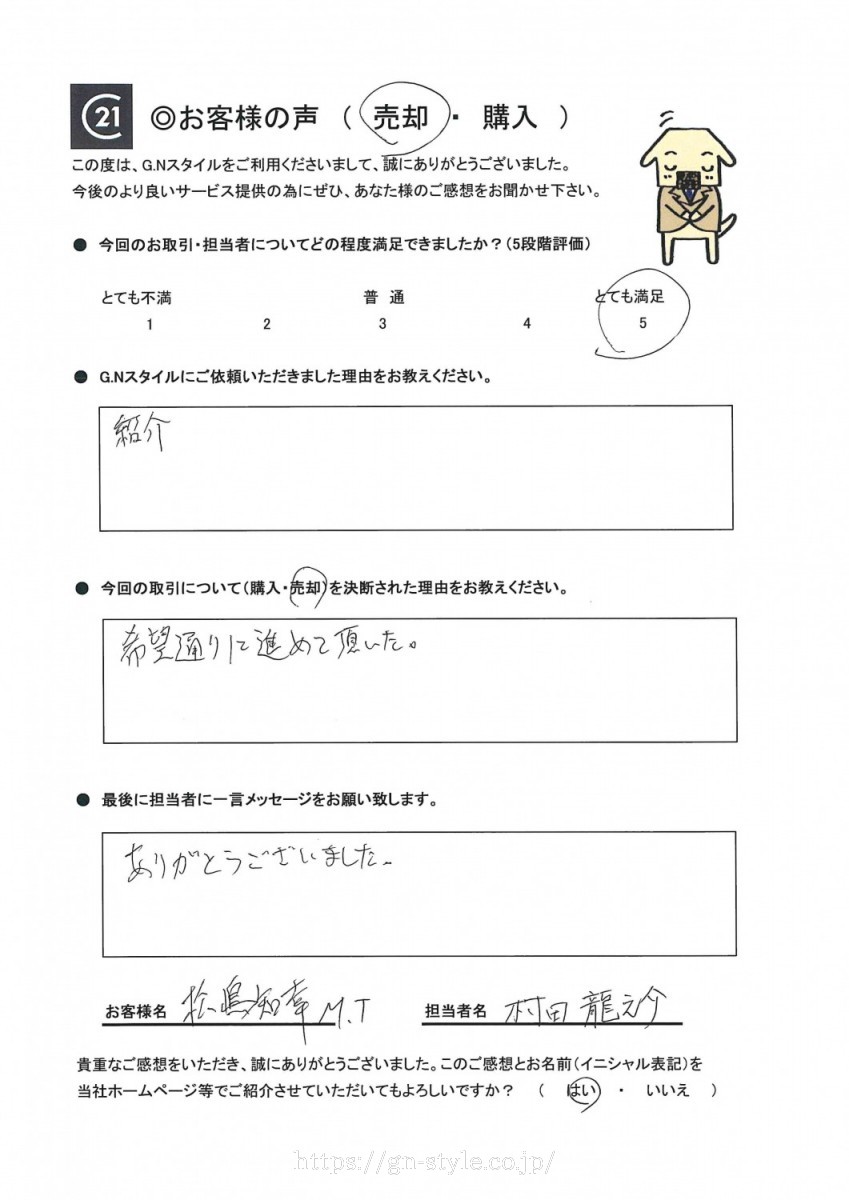 21 ◎お客様の声 ( 売却 ・ 購入 )
この度は、G.Nスタイルをご利用くださいまして、誠にありがとうございました。
今後のより良いサービス提供の為にぜひ、あなた様のご感想をお聞かせ下さい。
● 今回のお取引・担当者についてどの程度満足できましたか？(5段階評価)
とても不満 普 通 とても満足
1 2 3 4 5
● G.Nスタイルにご依頼いただきました理由をお教えください。
紹介
● 今回の取引について(購入・売却)を決断された理由をお教えください。
希望通りに進めて頂いた。
● 最後に担当者に一言メッセージをお願い致します。
ありがとうございました。
お客様名 松島知幸 M.T 担当者名 村田龍之介
貴重なご感想をいただき、誠にありがとうございました。このご感想とお名前(イニシャル表記)を
当社ホームページ等でご紹介させていただいてもよろしいですか？ ( はい ・ いいえ )
https://gn-style.co.jp/